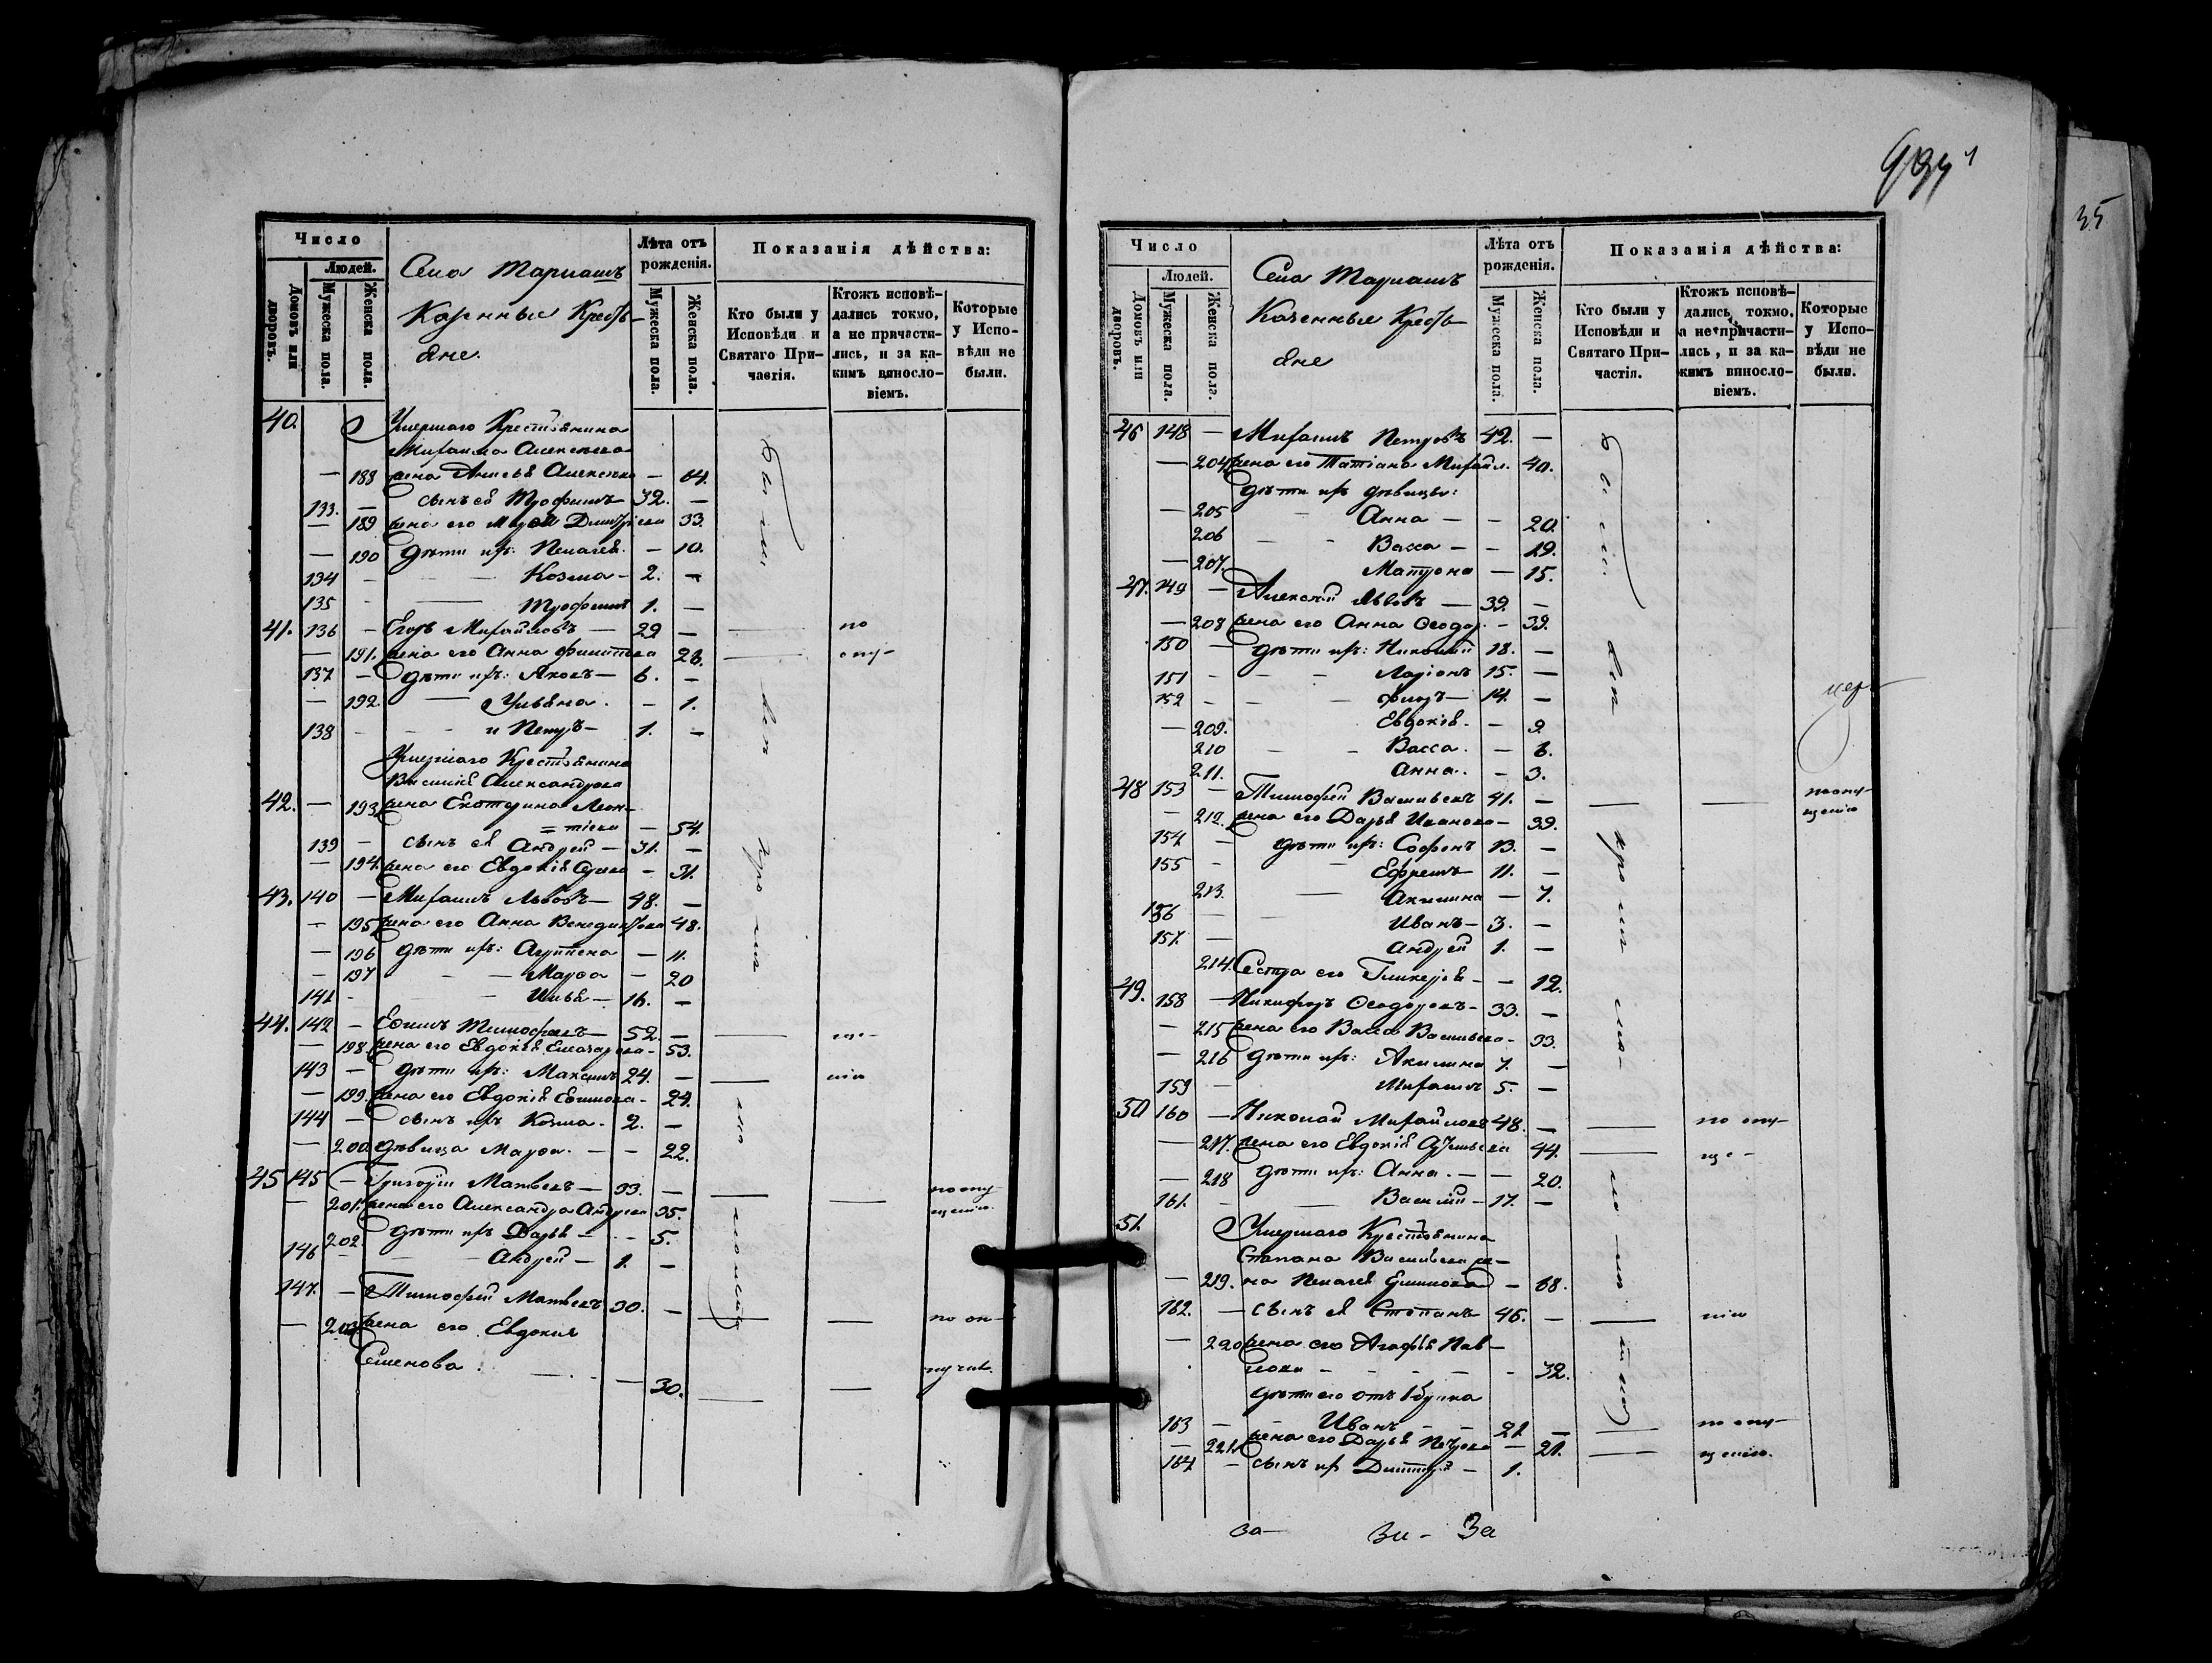 Число
Людей.
Домовъ или дворовъ.
Мужеска пола.
Женска пола.
Села Тарлашъ
Казенные Кресть-
яне.
Лѣта отъ рожденія.
Мужеска пола.
Женска пола.
Показанія дѣйства:
Кто были у Исповѣди и Святаго При-частія.
Ктожъ исповѣ-дались токмо, а не причасти-лись, и за ка-кимъ виносло-віемъ.
Которые у Испо-вѣди не были.
40. Умершаго Крестьянина
Михаила Алексѣева
— 188 жена Анисья Алексѣева — 64.
133. — сынъ ея Трофимъ 32. —
— 189 жена его Марѳа Димитріева 33.
— 190 дѣти ихъ: Пелагея — 10.
134 — Козма — 2. —
135 — Трофимъ 1. —
41. 136 — Егоръ Михайловъ — 29 — по
— 191. жена его Анна Филиппова 28. опу-
137 — дѣти ихъ: Яковъ — 6. —
— 192. Ульяна. — 1.
138 — и Петръ — 1. —
Умершаго Крестьянина
Василія Александрова
42. — 193 жена Екатерина Леон-
=тіева — 54.
139 — сынъ ея Андрей — 31. —
— 194. жена его Евдокія — 31.
43. 140 — Михаилъ Львовъ — 48. —
— 195 жена его Анна Венедиктова 48.
— 196 дѣти ихъ: Агрипена — 11.
— 197 — Марѳа — 20
141 — Илья — 16. —
44. 142 — Ефимъ Тимофеевъ — 52. — ще-
— 198. жена его Евдокія Елеазарова — 53.
143 — дѣти ихъ: Максимъ 24. — нію
— 199. жена его Евдокія Ефимова — 24.
144 — сынъ ихъ Козма. 2. —
— 200 дѣвица Марѳа. — — 22.
45 145 — Григорій Матвеевъ — 33. — по опу-
— 201. жена его Александра Андреева 35. щенію.
202. дѣти ихъ Дарья — 5.
146 — Андрей — 1. —
147. — Тимофей Матвеевъ 30. — по оп-
— 203. жена его Евдокия
Семенова. — 30.
были вси кромя мо
Число
Людей.
Домовъ или дворовъ.
Мужеска пола.
Женска пола.
Села Тарлашъ
Казенные Кресть-
яне
Лѣта отъ рожденія.
Мужеска пола.
Женска пола.
Показанія дѣйства:
Кто были у Исповѣди и Святаго При-частія.
Ктожъ исповѣ-дались токмо, а не причасти-лись, и за ка-кимъ винносло-віемъ.
Которые у Испо-вѣди не были.
46 148 — Михаилъ Петровъ 42. —
— 204 жена его Татіана Михайл. 40.
дѣти ихъ дѣвицы:
— 205 Анна — — 20.
206 — Васса — — 19.
— 207. Матрона — 15.
47. 149 — Алексѣй Львовъ — 39. —
— 208 жена его Анна Ѳеодор. — 39.
150 — дѣти ихъ: Николай 18. —
151 — Ларіонъ 15. —
152 — 14. —
— 209. Евдокія. — 9
210 — Васса. — 6.
211. Анна. — 3.
48 153 — Тимофей Васильевъ 41. — по опу-
— 212. жена его Дарья Иванова — 39. щенію
154 — дѣти ихъ: Софонъ 13. —
155 — Ефремъ 11. —
213. Акилина — 7.
156 — Иванъ — 3. —
157. — Андрей 1. —
214. Сестра его Гликерія — — 12.
49. 158 — Никифоръ Ѳеодоровъ — 33. —
— 215 жена его Васса Васильева — 33.
— 216 дѣти ихъ: Акилина 7. —
159 — Михаилъ 5. —
50 160 — Николай Михайловъ 48. — по опу-
— 217. жена его Евдокія 44. ще-
— 218 дѣти ихъ: Анна. — — 20.
161. — Василій — 17. —
51. Умершаго Крестьянина
Степана Васильева же-
— 219. на Пелагея — 68.
162. — сынъ ея Степанъ 46. — нію
— 220 жена его Агафья Пав-
лова — — — — 32.
дѣти его отъ 1 брака
163 — Иванъ — 21 — по опу-
— 221. жена его Дарья Петрова — 21. щенію.
164 — сынъ ихъ Димитрій — 1.
были вси кромя
За —
35